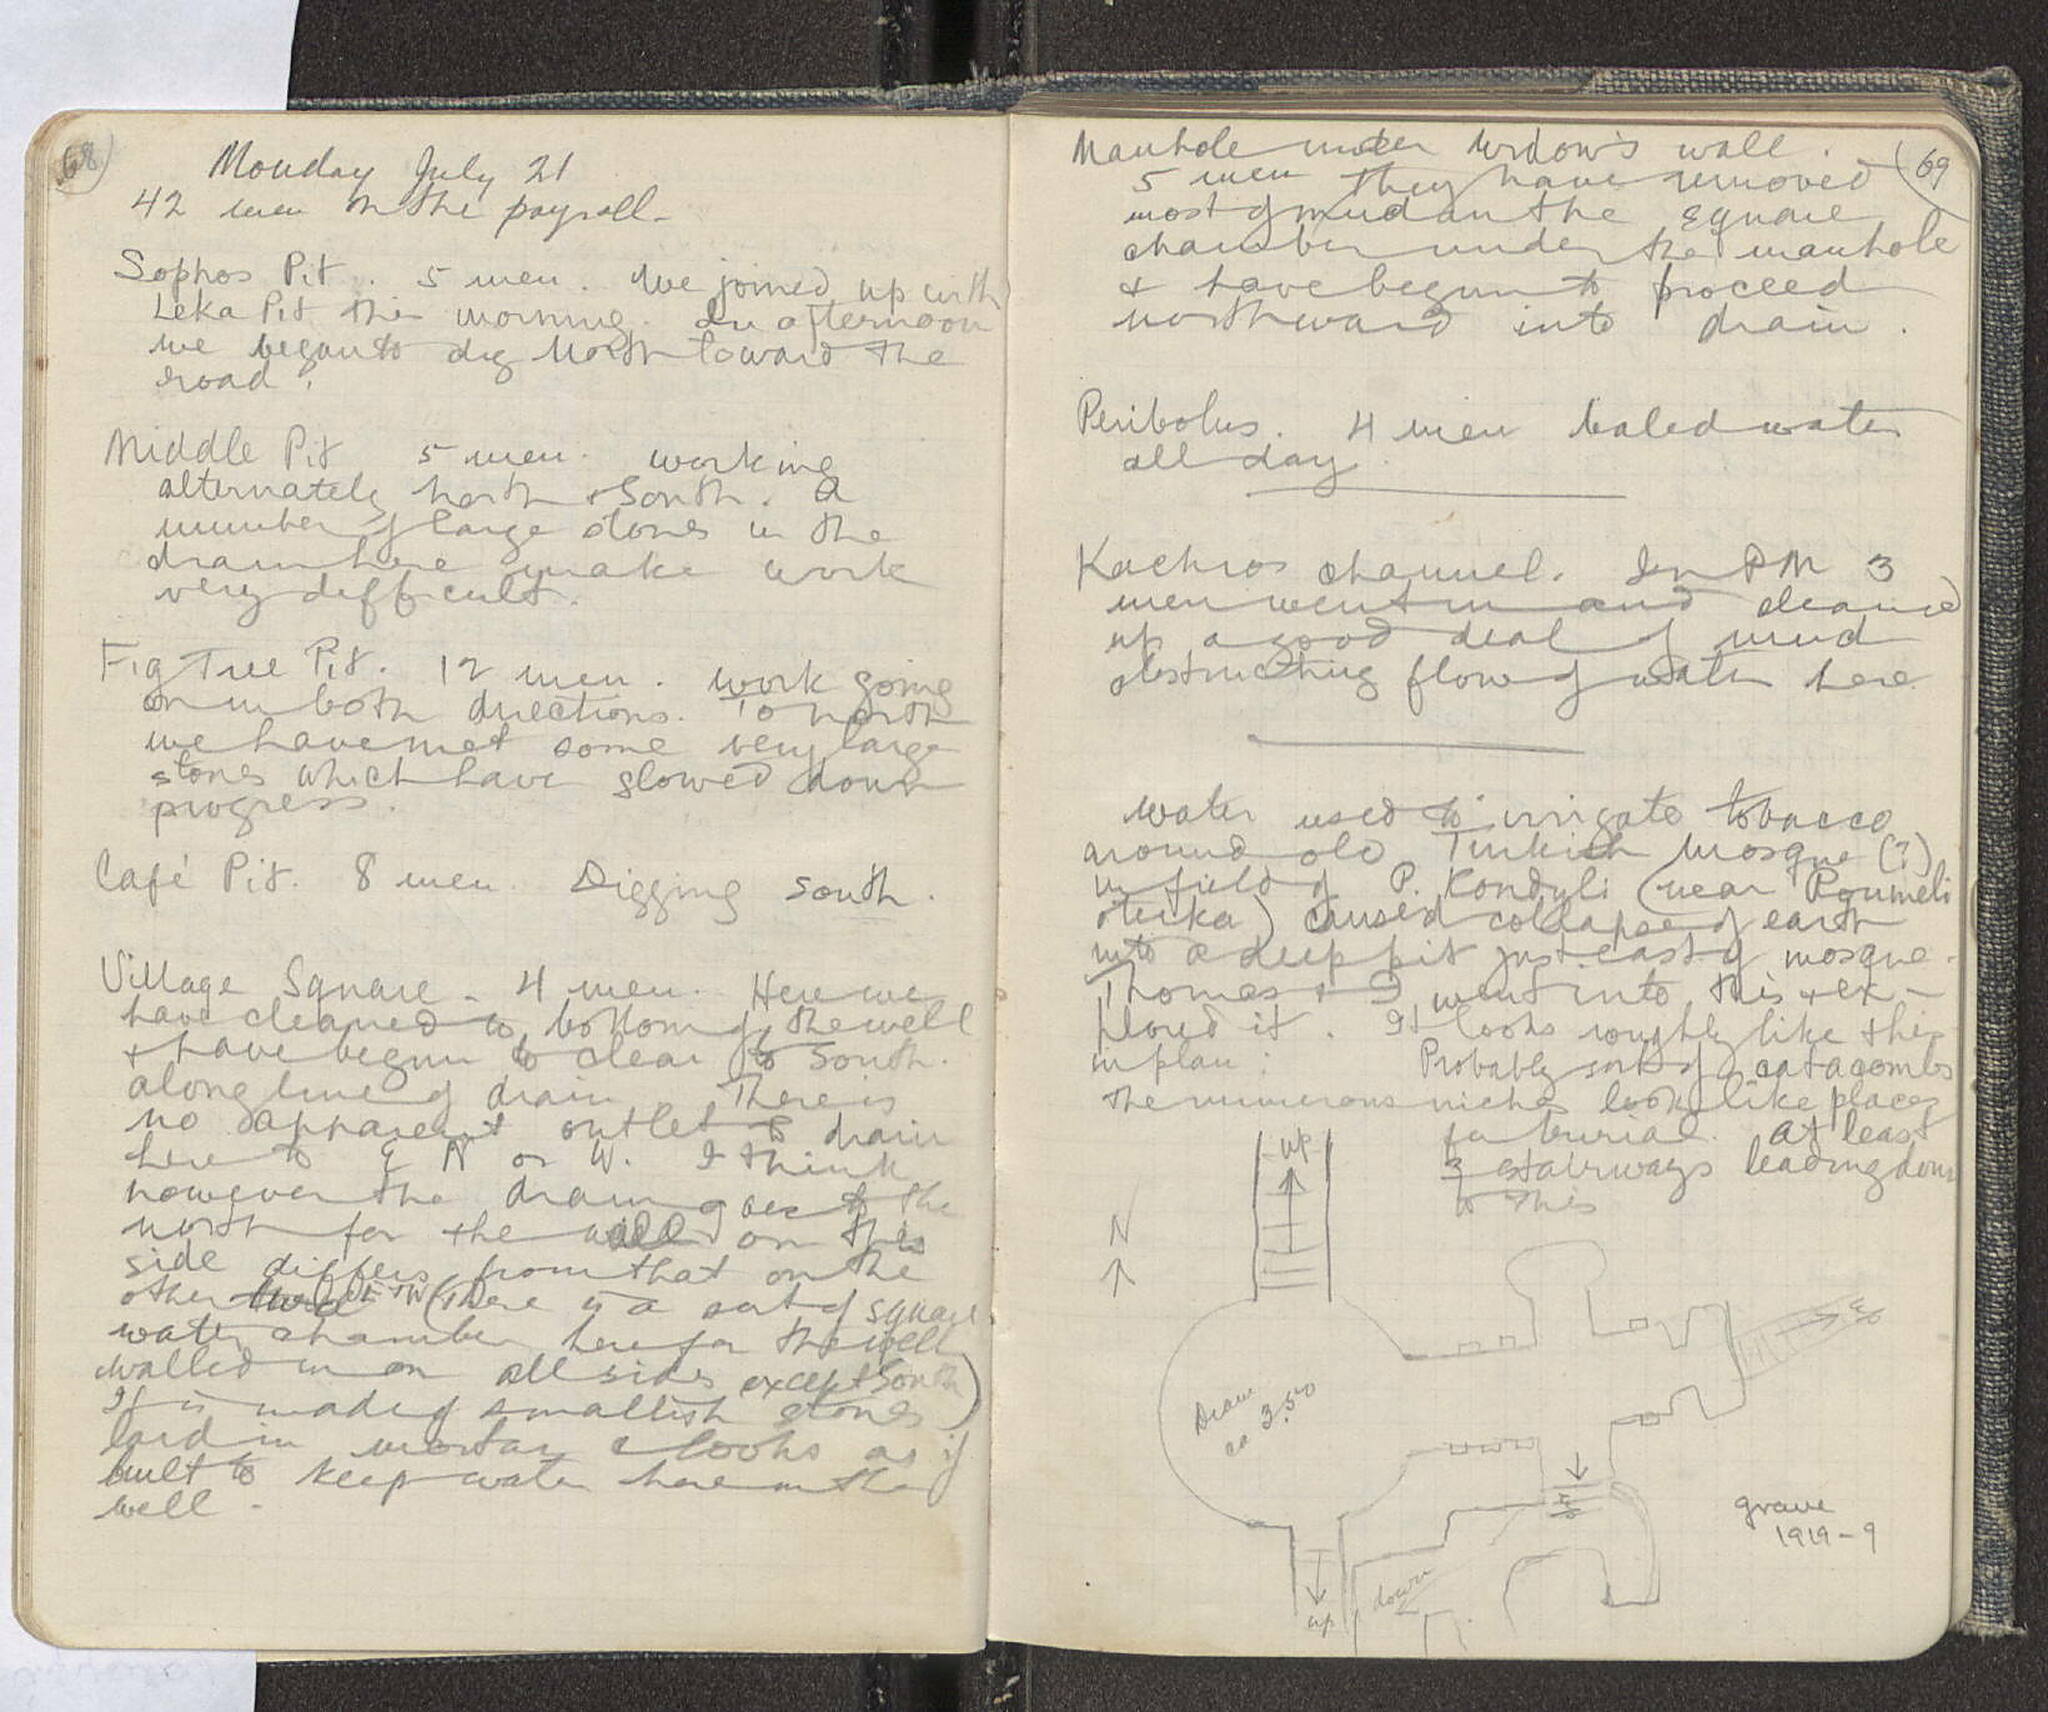 68
Monday July 21
42 men on the payroll.
Sophos Pit. 5 men. We joined up with
Leka Pit this morning. In afternoon
we began to dig North toward the
road.
Middle Pit 5 men. working
alternately north & South. A
number of large stones in the
drain here make work
very difficult.
Fig Tree Pit. 12 men. work going
on in both directions. To north
we have met some very large
stones which have slowed down
progress.
Café Pit. 8 men. Digging south.
Village Square. 4 men. Here we
have cleaned to bottom of the well
& have begun to clear to South.
along line of drain. There is
no apparent outlet to drain
here to E N or W. I think
however the drain goes to the
north for the wall on this
side differs from that on the
other E & W (There is a sort of square
water chamber here for the well
walled in on all sides except South)
It is made of smallish stones
laid in mortar & looks as if
built to keep water here in the
well.
69
Manhole under widow's wall.
5 men They have removed
most of mud in the square
chamber under the manhole
& have begun to proceed
northward into drain.
Peribolus. 4 men baled water
all day.
Kachros channel. In PM 3
men went in and cleaned
up a good deal of mud
obstructing flow of water here.
Water used to irrigate tobacco
around old Turkish Mosque (?)
in field of P. Kondyli (near Roumeli
oteika) caused collapse of earth
into a deep pit just east of mosque.
Thomas & I went into this & ex-
plored it. It looks roughly like this
in plan: Probably sort of catacombs
the numerous niches look like places
for burial. At least
3 stairways leading down
to this
up
N
up
Diam
ca 3.50
up
grave
1919-9
down
up